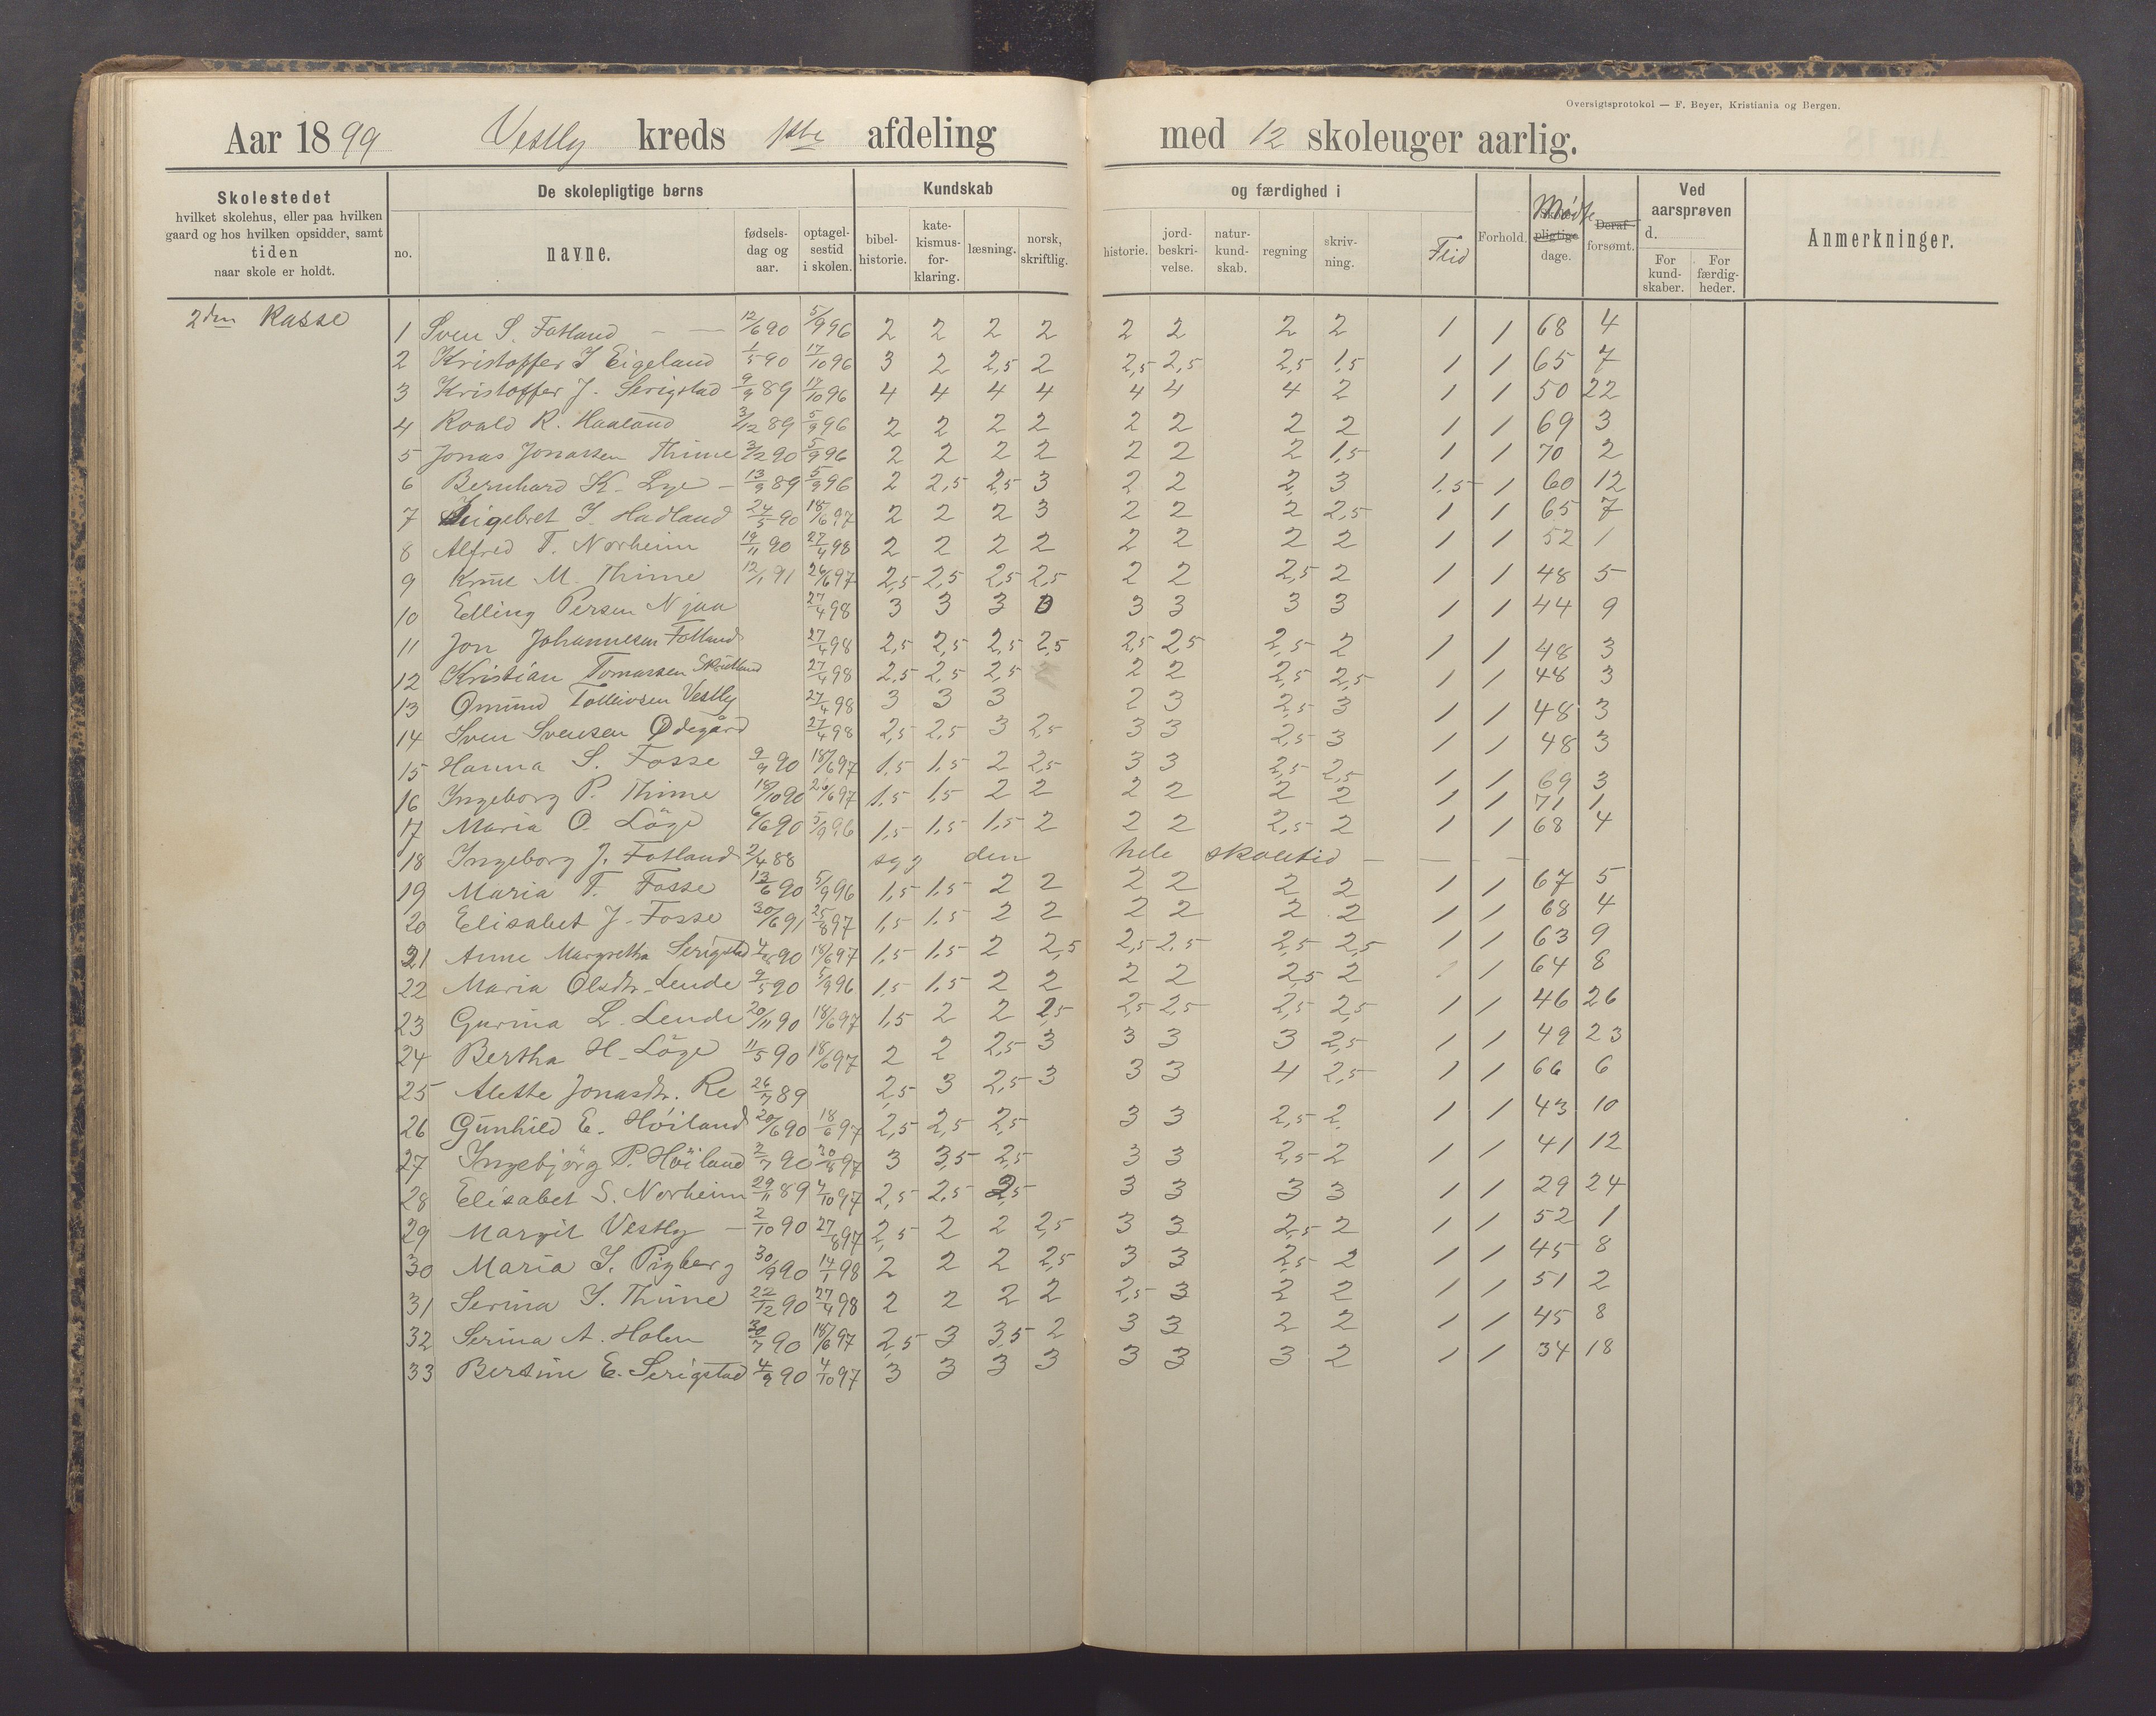 Oversigtsprotokol — F. Beyer, Kristiania og Bergen.
Aar 1899 Vestly kreds 1ste afdeling med 12 skoleuger aarlig.
Skolestedet hvilket skolehus, eller paa hvilken gaard og hos hvilken opsidder, samt tiden naar skole er holdt.
De skolepligtige børns
no. navne. fødselsdag og aar. optagelsestid i skolen.
Kundskab og færdighed i
bibelhistorie. katekismusforklaring. læsning. norsk, skriftlig. historie. jordbeskrivelse. naturkundskab. regning skrivning. Flid
Forhold. Mødte Skolepligtige dage. Deraf forsømt.
Ved aarsprøven d.
For kundskaber. For færdigheder.
Anmerkninger.
2den Klasse
1 Sven S. Fotland 12/6 90 5/9 96 2 2 2 2 2 2 2 2 1 1 68 4
2 Kristoffer J Eigeland 1/5 90 17/10 96 3 2 2,5 2 2,5 2,5 2,5 1,5 1 1 65 7
3 Kristoffer J. Serigstad 9/9 89 17/10 96 4 4 4 4 4 4 4 2 1 1 50 22
4 Roald R. Haaland 3/12 89 5/9 96 2 2 2 2 2 2 2 2 1 1 69 3
5 Jonas Jonassen Thime 3/2 90 5/9 96 2 2 2 2 2 2 2 1,5 1 1 70 2
6 Bernhard K. Lye 13/9 89 5/9 96 2 2,5 2,5 3 2 2 2 3 1,5 1 60 12
7 J. Hadland 24/5 90 18/6 97 2 2 2 3 2 2 2 2,5 1 1 65 7
8 Alfred T. Norheim 19/11 90 27/4 98 2 2 2 2 2 2 2 2 1 1 52 1
9 M. Thime 12/1 91 26/6 97 2,5 2,5 2,5 2,5 2 2 2,5 2 1 1 48 5
10 Elling Persen Njaa 27/4 98 3 3 3 0 3 3 3 3 1 1 44 9
11 Jon Johannesen Fotland 27/4 98 2,5 2,5 2,5 2,5 2,5 2,5 2,5 2 1 1 48 3
12 Kristian Tomassen Skrudland 27/4 98 2,5 2,5 2,5 2 2 2,5 2,5 1 1 48 3
13 Omund Tolleivsen Vestly 27/4 98 3 3 3 2 3 2,5 3 1 1 48 3
14 Sven Svensen Ødegård 27/4 98 2,5 2,5 3 2,5 3 3 2,5 3 1 1 48 3
15 Hanna S. Fosse 9/9 90 18/6 97 1,5 1,5 2 2,5 3 3 2,5 2,5 1 1 69 3
16 Ingeborg P. Thime 18/10 90 26/6 97 1,5 1,5 2 2 2 2 2 2 1 1 71 1
17 Maria O. Löge 6/6 90 5/9 96 1,5 1,5 1,5 2 2 2 2,5 2 1 1 68 4
18 Ingeborg J. Fotland 2/4 88 syg den hele skoletid
19 Maria T. Fosse 13/6 90 5/9 96 1,5 1,5 2 2 2 2 2 2 1 1 67 5
20 Elisabet J. Fosse 30/6 91 25/8 97 1,5 1,5 2 2 2 2 2 2 1 1 68 4
21 Anne Margretha Serigstad 90 18/6 97 1,5 1,5 2 2,5 2,5 2,5 2,5 2,5 1 1 63 9
22 Maria Olsdtr. Lende 9/5 90 5/9 96 1,5 1,5 2 2 2 2 2,5 2 1 64 8
23 Gurina L. Lende 20/11 90 18/6 97 1,5 2 2 2,5 2,5 2,5 2,5 2,5 1 1 46 26
24 Bertha H. Löge 11/5 90 18/6 97 2 2 2,5 3 3 3 3 2,5 1 1 49 23
25 Alette Jonasdtr. Re 26/7 89 2,5 3 2,5 3 3 3 4 2,5 1 1 66 6
26 Gunhild E. Höiland 20/6 90 18/6 97 2,5 2,5 2,5 3 3 2,5 2 1 1 43 10
27 Ingebjörg P. Höiland 2/7 90 30/8 97 3 3,5 2,5 3 3 2,5 2 1 1 41 12
28 Elisabet S. Norheim 29/11 89 4/10 97 2,5 2,5 2,5 3 3 3 3 1 1 29 24
29 Margit Vestly 2/10 90 27/8 97 2,5 2 2 2,5 3 3 2,5 2 1 1 52 1
30 Maria J. Rygberg 30/9 90 14/1 98 2 2 2 2,5 3 3 2,5 2 1 1 45 8
31 Serina S. Thime 22/12 90 27/4 98 2 2 2 2 2,5 3 2 2 1 1 51 2
32 Serina A. Holen 30/7 90 18/6 97 2,5 3 3,5 2 3 3 2 2 1 1 45 8
33 Bertine E. Serigstad 4/9 90 4/10 97 3 3 3 3 3 3 3 2 1 1 34 18